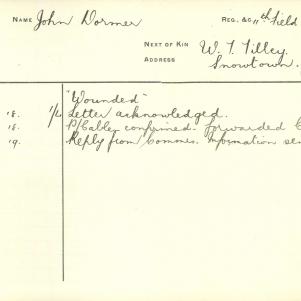 NAME John Dormer REG. &C 11th Field
NEXT OF KIN W. T. Tilley.
ADDRESS Snowtown.
"Wounded"
18. 1/4 Letter acknowledged.
18. P/Cables confirmed. Forwarded
19. Reply from Commrs. Information sen